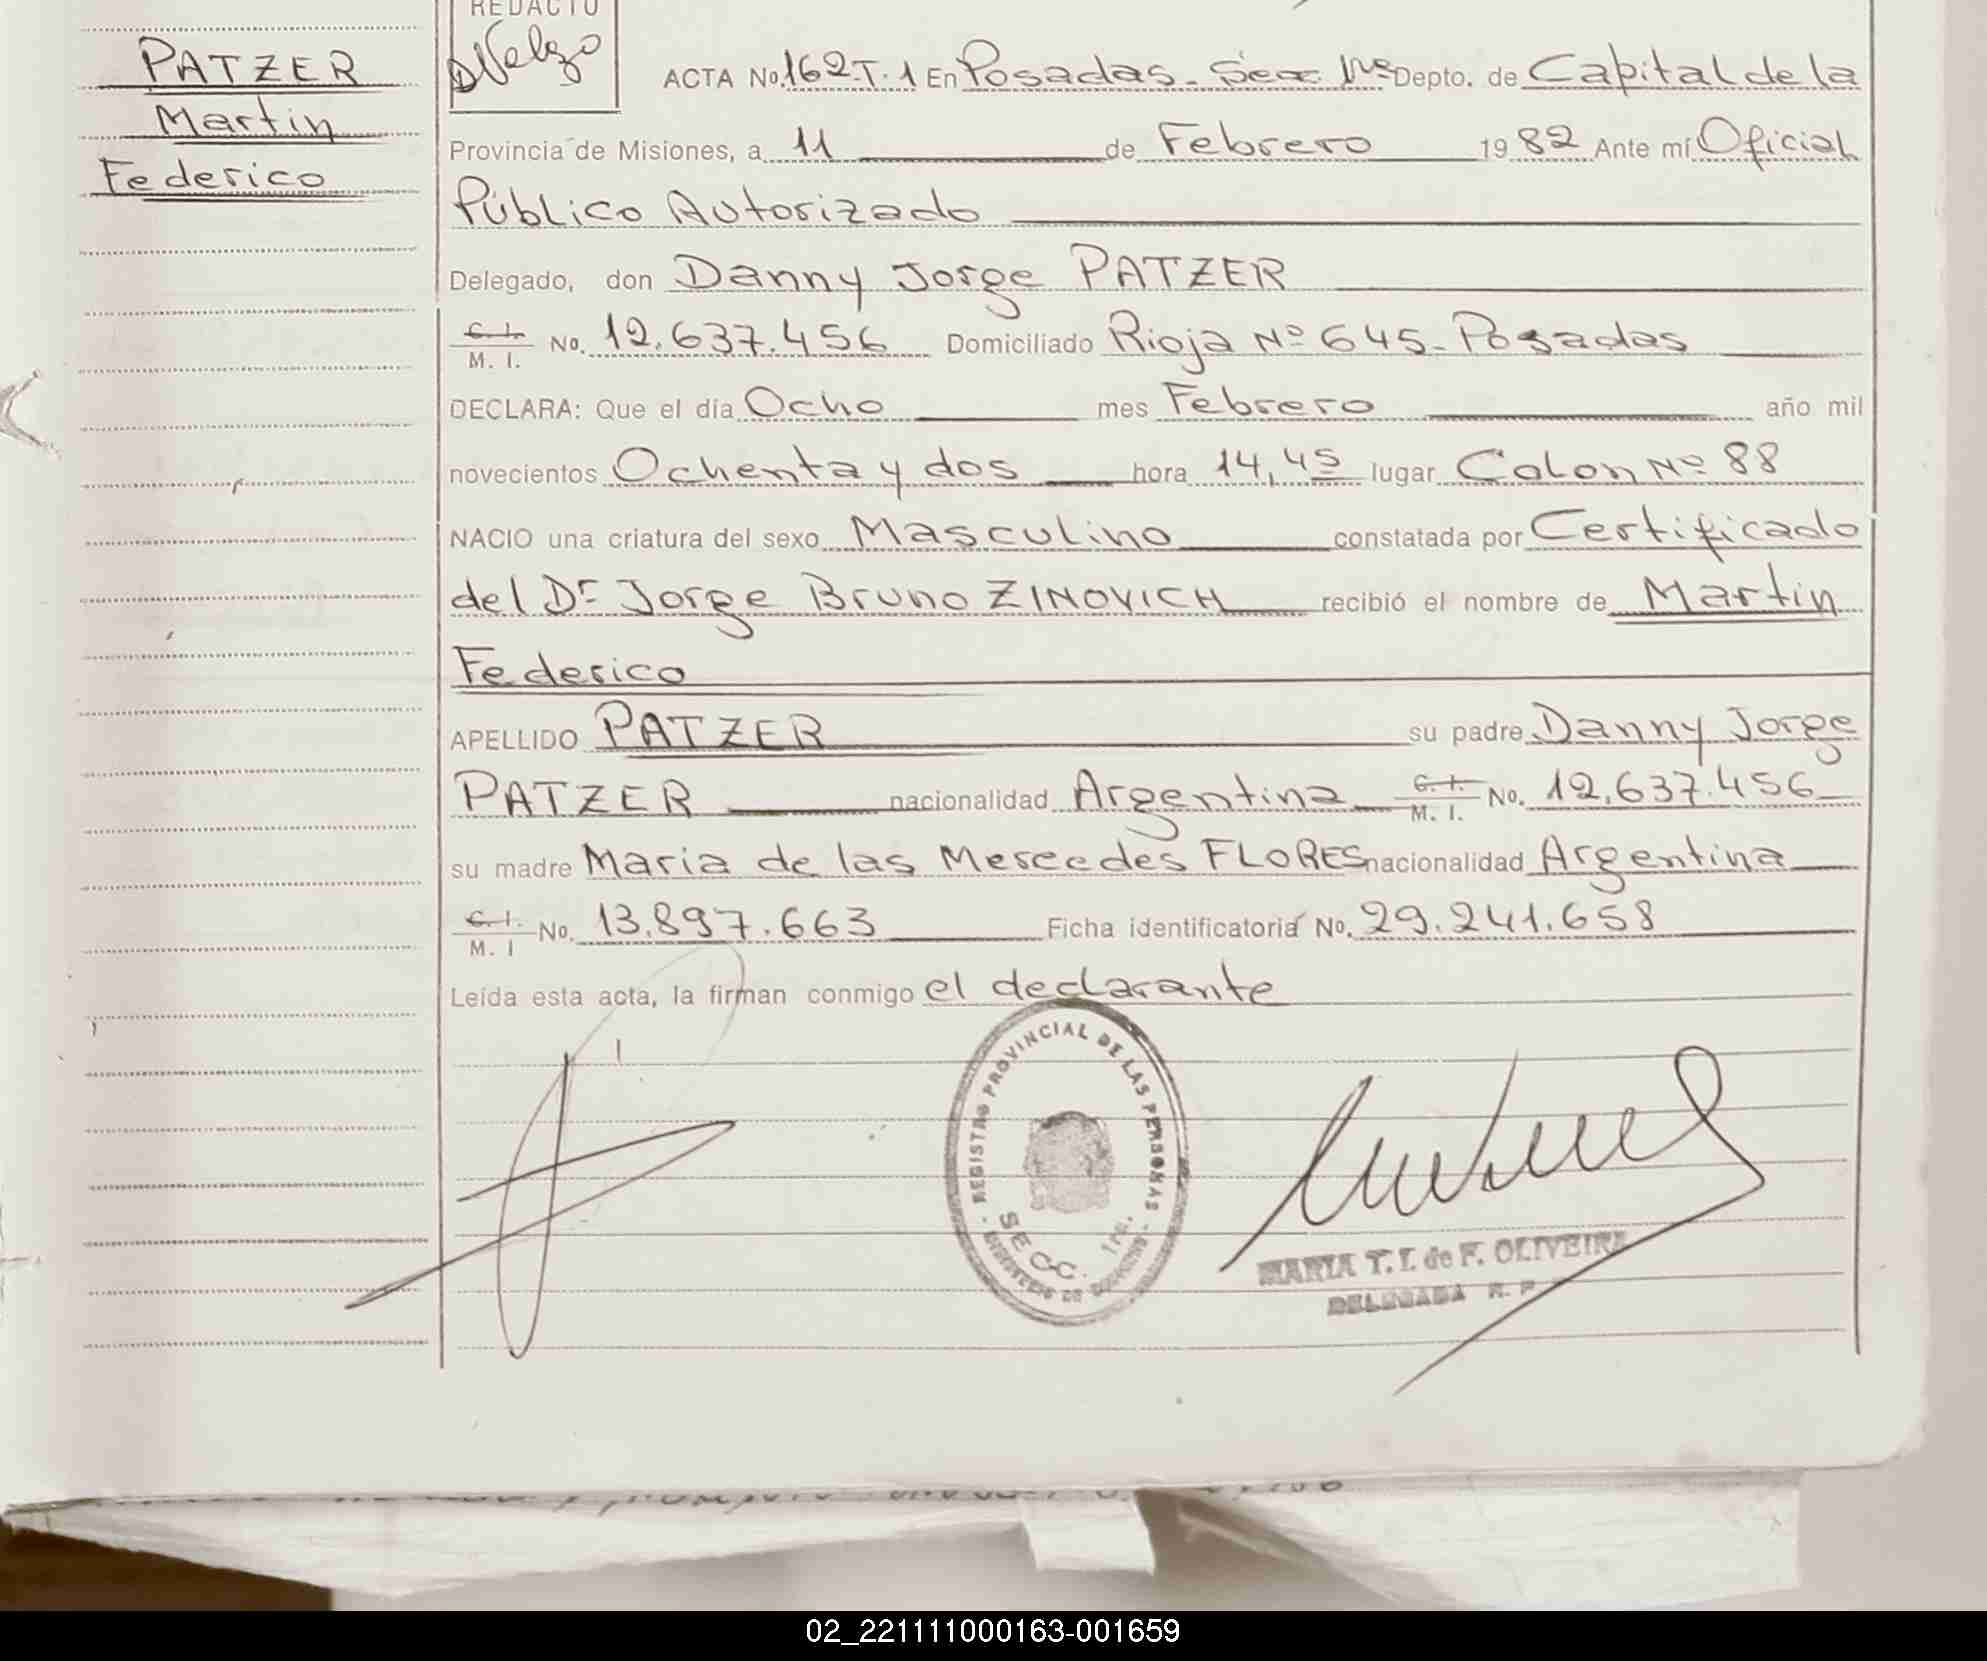 PATZER
Martin
Federico
REDACTO
ACTA No. 162-T.1 En Posadas - Sec 1ra Depto. de Capital de la
Provincia de Misiones, a 11 de Febrero 1982 Ante mí Oficial
Público Autorizado
Delegado, don Danny Jorge PATZER
C.I. M. I. No. 12.637.456 Domiciliado Rioja Nº 645- Posadas
DECLARA: Que el día Ocho mes Febrero año mil
novecientos Ochenta y dos hora 14,45 lugar Colon Nº 88
NACIO una criatura del sexo Masculino constatada por Certificado
del Dr Jorge Bruno ZINOVICH recibió el nombre de Martin
Federico
APELLIDO PATZER su padre Danny Jorge
PATZER nacionalidad Argentina C.I. M. I. No. 12.637.456
su madre Maria de las Mercedes FLORES nacionalidad Argentina
C.I. M. I No. 13.897.663 Ficha identificatoria No. 29.241.658
Leída esta acta, la firman conmigo el declarante
REGISTRO PROVINCIAL DE LAS PERSONAS
SECC. 1ra.
MARIA T. I. de F. OLIVEIRA
DELEGADA R. P
02_221111000163-001659